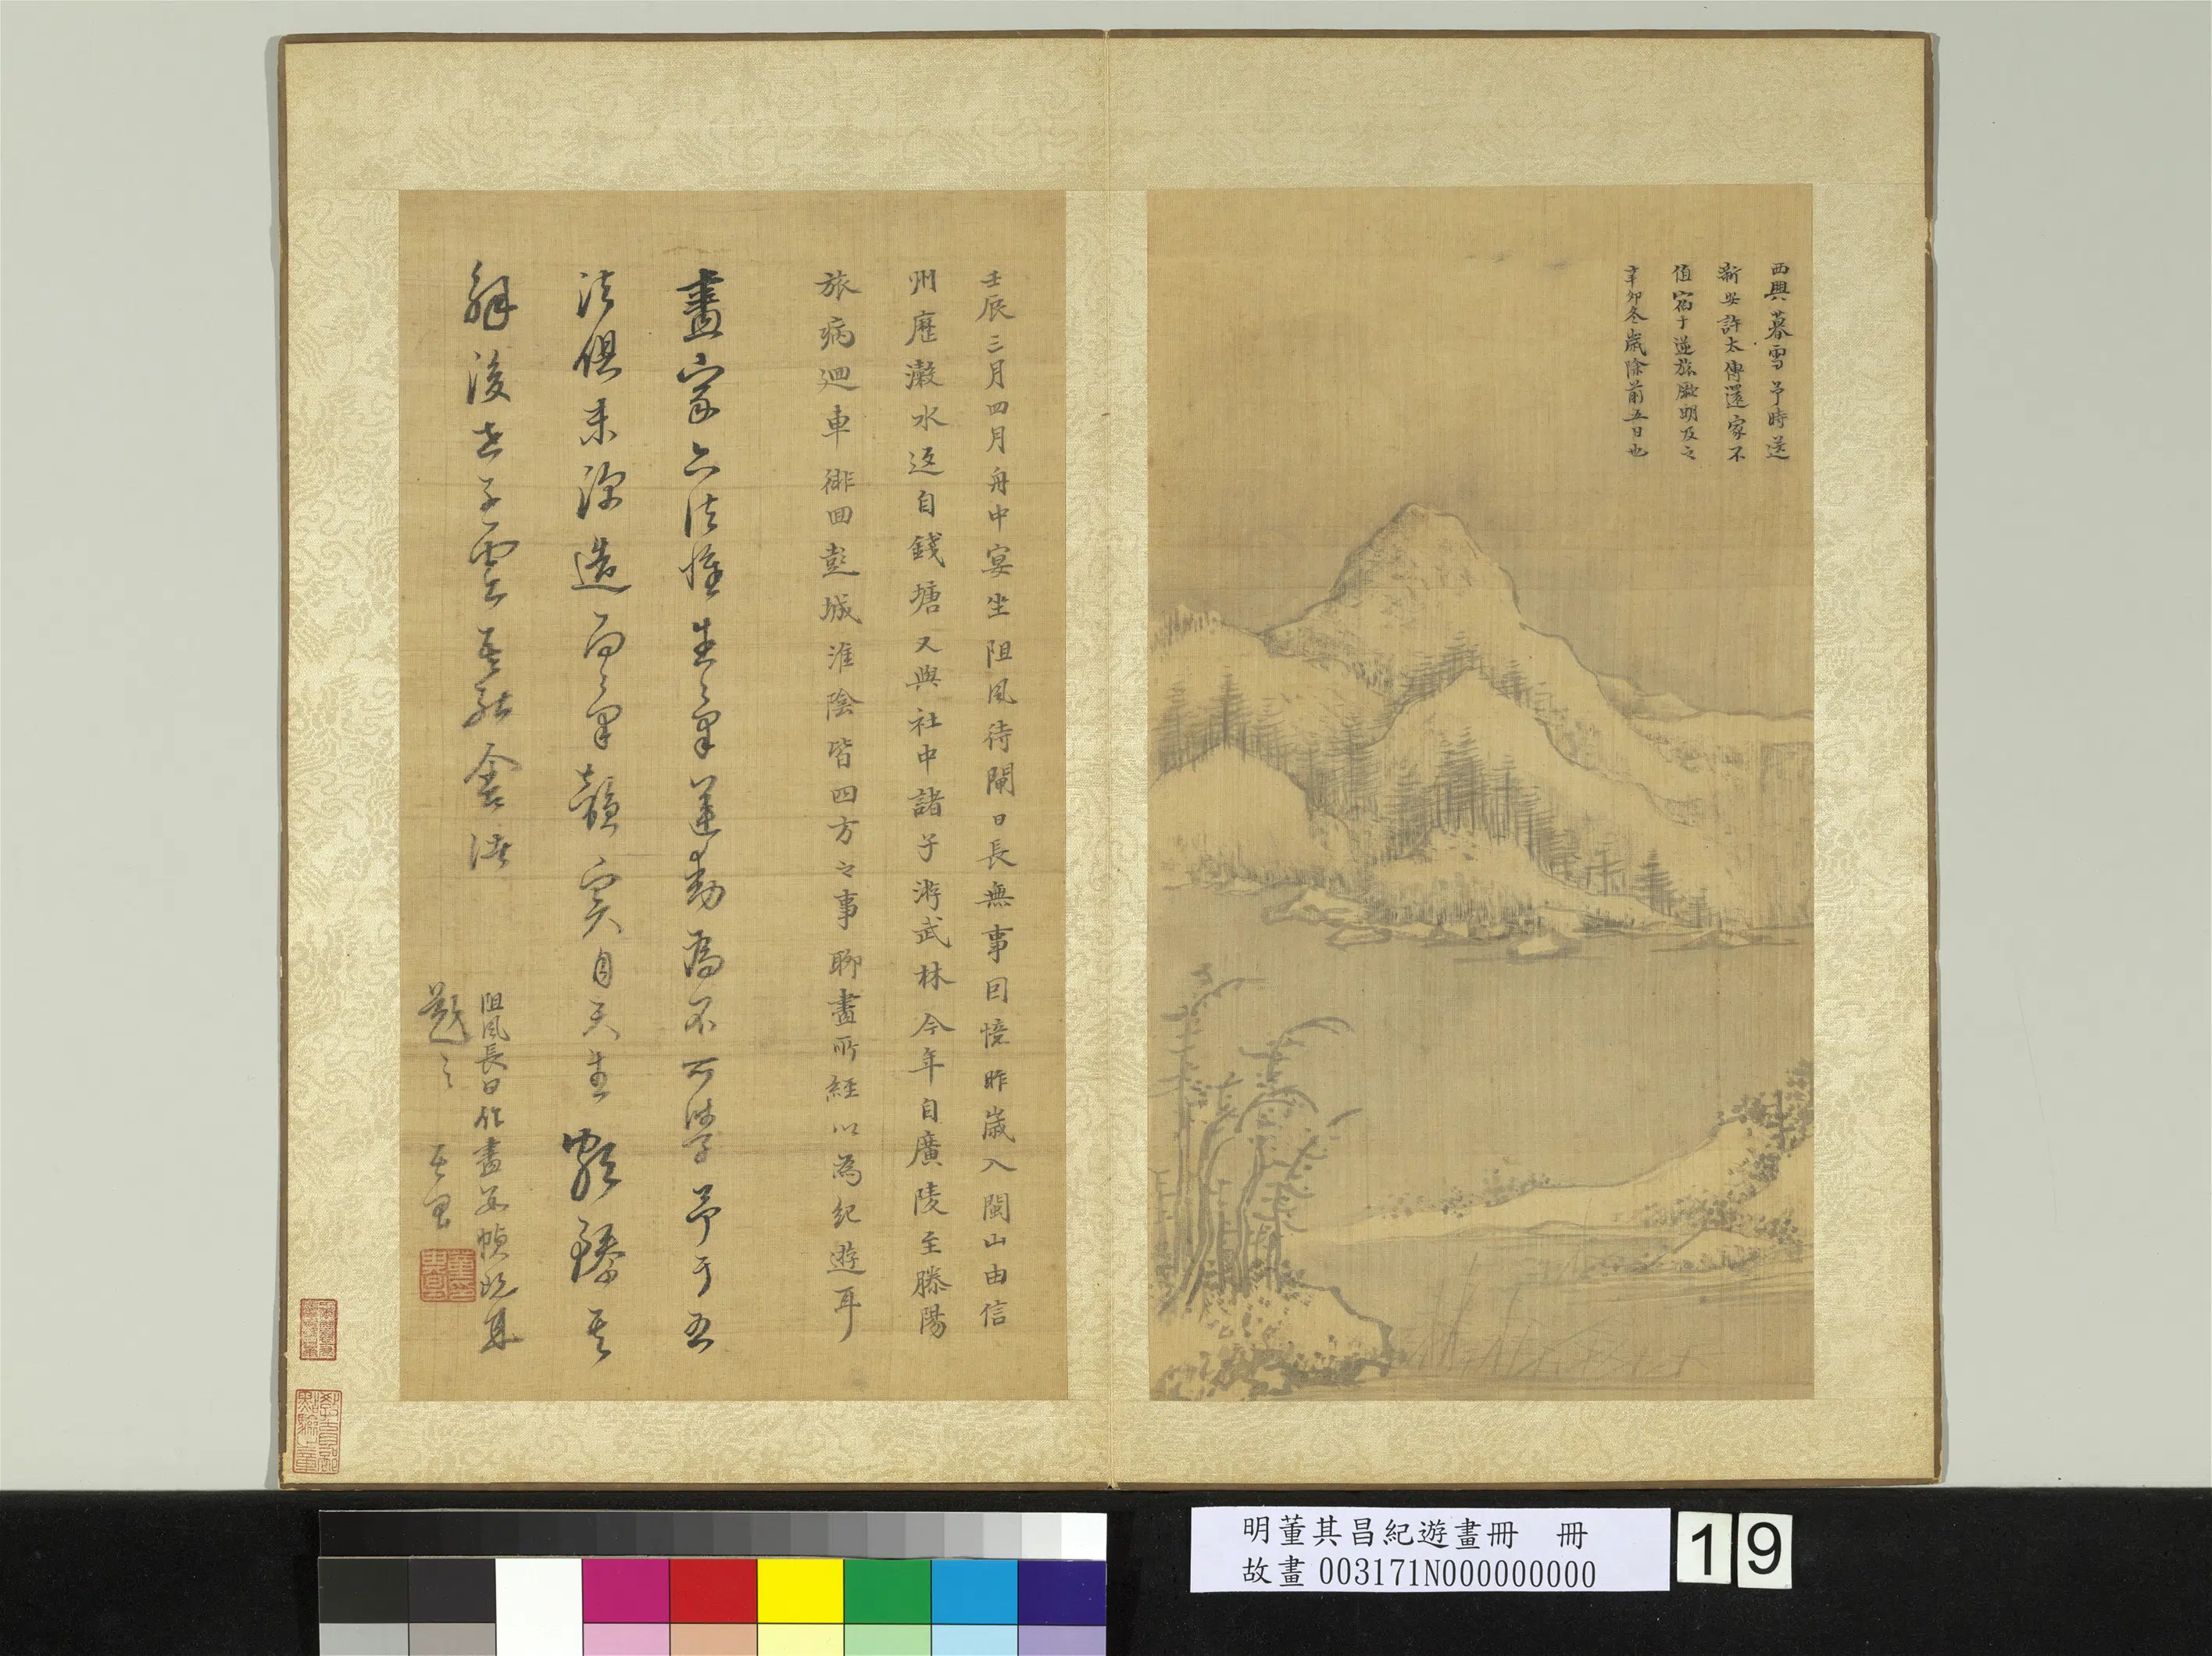 西興暮雪予時送
新安許太傅還家不
值宿于逆旅厥明及之
辛卯冬歲除前五日也
壬辰三月四月舟中宴坐阻風待閘日長無事回憶昨歲入閩山由信
州歷瀫水返自錢塘又與社中諸子游武林今年自廣陵至滕陽
旅病廻車徘回彭城淮陰皆四方之事聊畫所經以為紀遊耳
畫家六法惟生氣運動為不可學予于五
法俱未深造而氣韻實自天生顆臻其
解後世子雲
阻風長日作畫
題之 其昌
明董其昌紀遊畫冊 冊
故畫003171N000000000
19